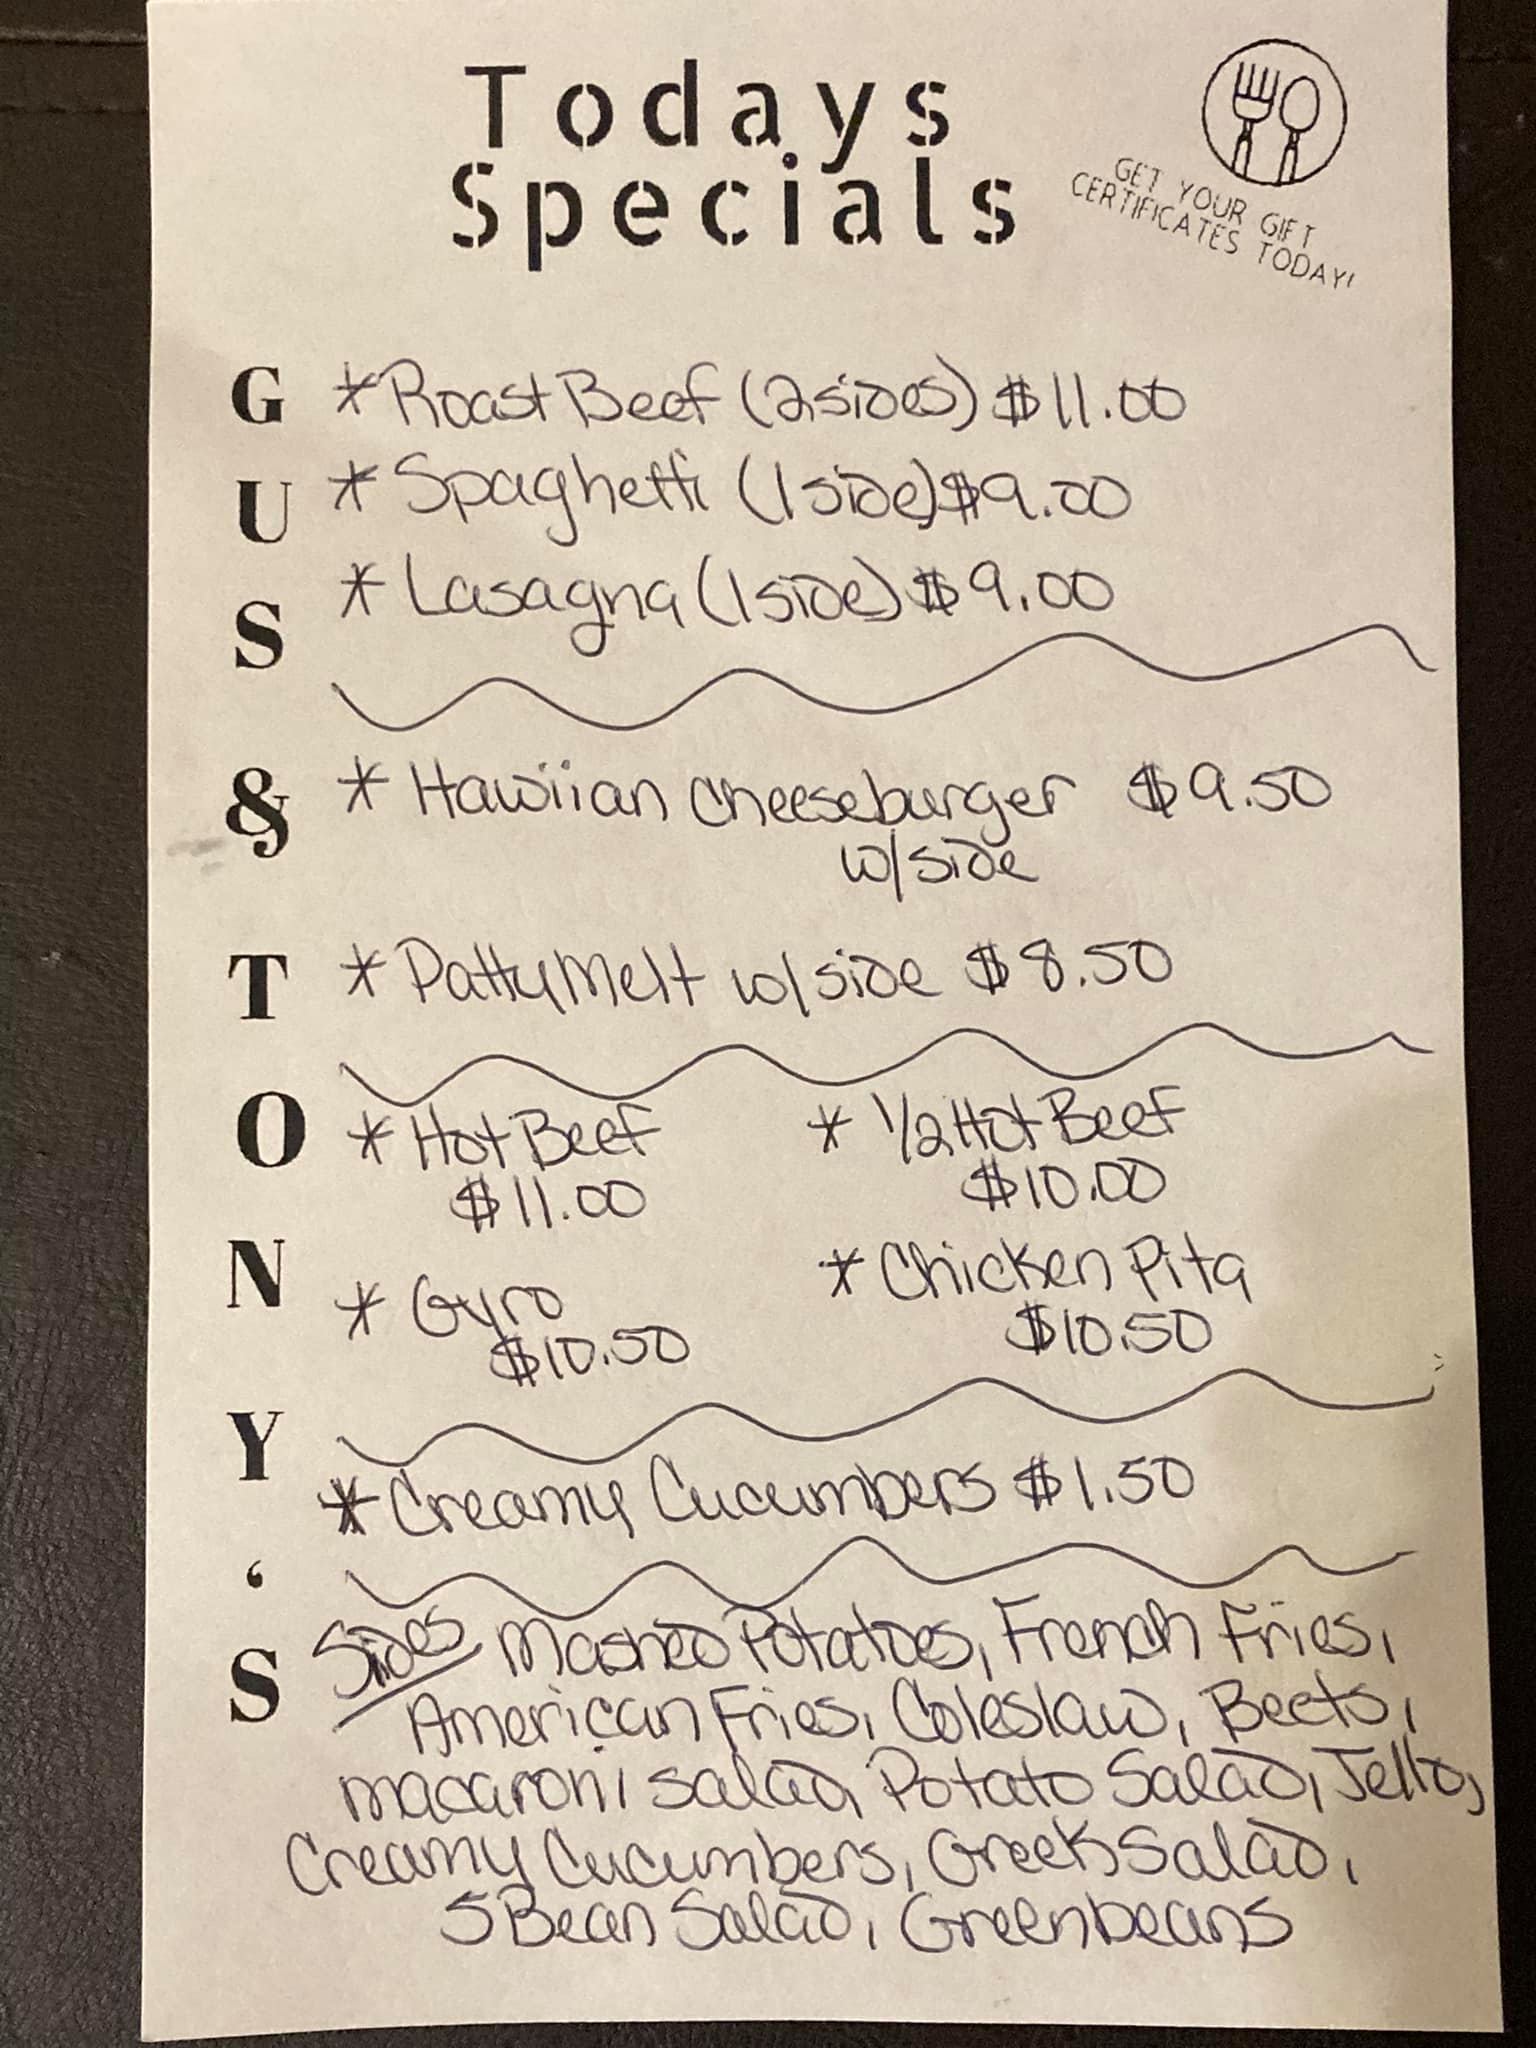 Todays
Specials
GET YOUR GIFT
CERTIFICATES TODAY!
GUS & TONY'S
* Roast Beef (2 sides) $11.00
* Spaghetti (1 side) $9.00
* Lasagna (1 side) $9.00
* Hawiian Cheeseburger $9.50
w/side
* Patty Melt w/side $8.50
* Hot Beef
$11.00
* 1/2 Hot Beef
$10.00
* Gyro
$10.50
* Chicken Pita
$10.50
* Creamy Cucumbers $1.50
Sides Mashed Potatoes, French Fries,
American Fries, Coleslaw, Beets,
macaroni salad, Potato Salad, Jello,
Creamy Cucumbers, Greek Salad,
5 Bean Salad, Greenbeans